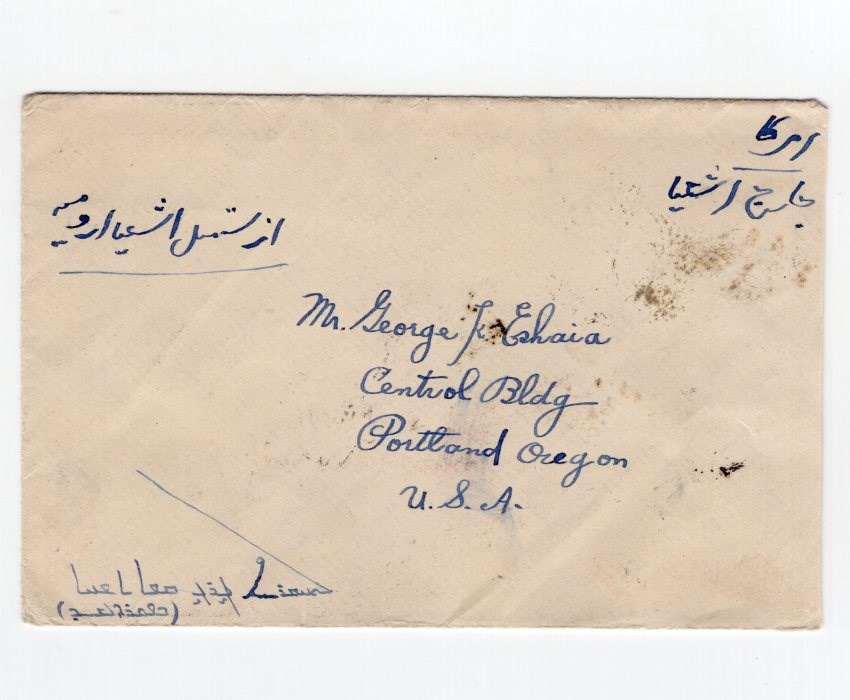 امرکا
جارج اشعیا
از شموئل اشعیا ارومیه
Mr. George K Eshaia
Central Bldg
Portland Oregon
U.S.A.